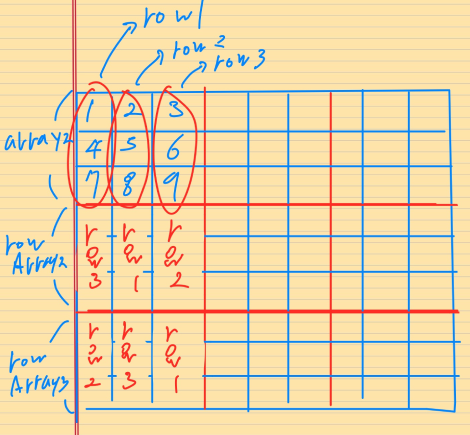 row1
row 2
row3
1 2 3
array2 4 5 6
7 8 9
row
Array2
row 3
row 1
row 2
row
Array3
row 2
row 3
row 1